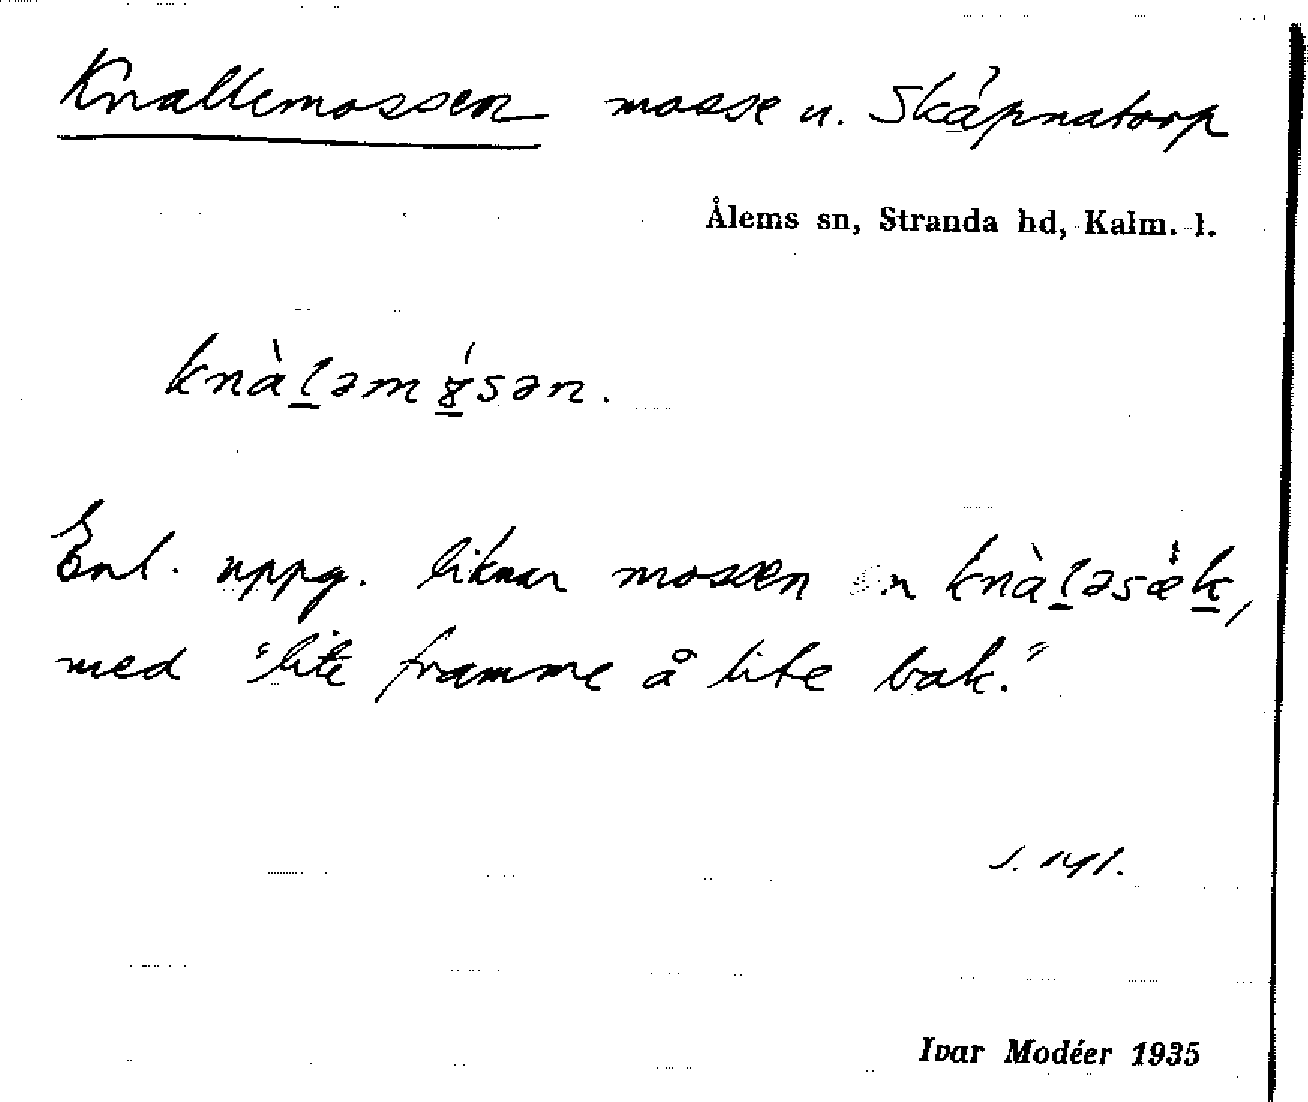 Knallemossen mosse u. Skåpnatorp
Ålems sn, Stranda hd, Kalm. l.
knàl̲əmɤ̲́sən.
Enl. uppg. liknar mossen en knàl̲əsæ̀k̲,
med "lite framme å lite bak."
Ivar Modéer 1935